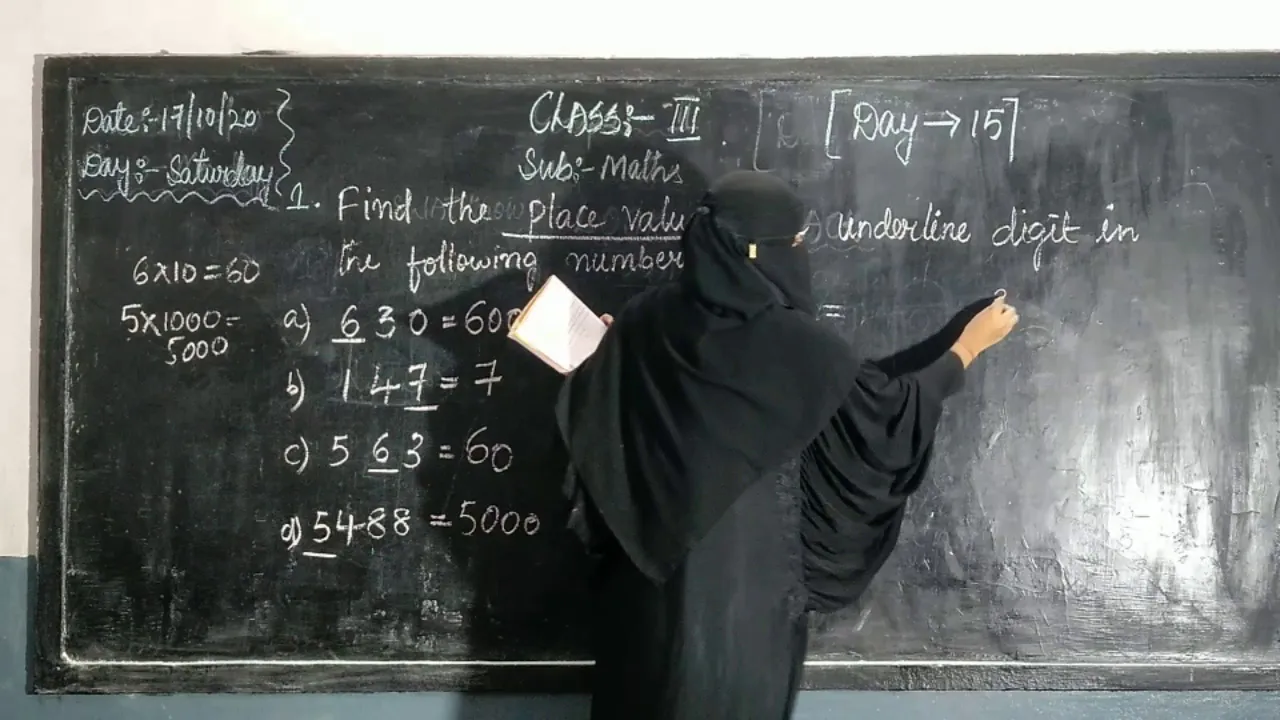 Date:-17/10/20
Day:-Saturday
CLASS:- III
Sub:-Maths
[Day→15]
1. Find the place valu underline digit in
the following number
6x10=60
5x1000=
5000
a) 630=600
b) 147=7
c) 563=60
d) 5488=5000
=